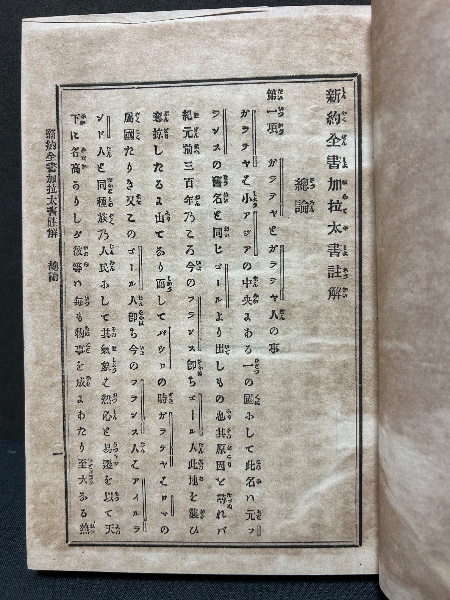 新約全書加拉太書註解
總論
第一項 ガラテヤとガラテヤ人の事
ガラテヤと小アジアの中央にある一の國にして此名ハ元フ
ランスの舊名と同じゴールより出しもの也其原因を尋れバ
紀元前三百年乃ころ今のフランス即ちゴール人此地を襲ひ
掠したるに由てあり而してパウロの時ガラテヤとロマの
屬國たりき又このゴール人即ち今のフランス人とアイルラ
ンド人と同種族乃人民にして其氣象と熱心と易遷を以て天
下に名高ありしが彼等ハ毎も物事を成にあたり至大なる熱
新約全書加拉太書註解 總論 一